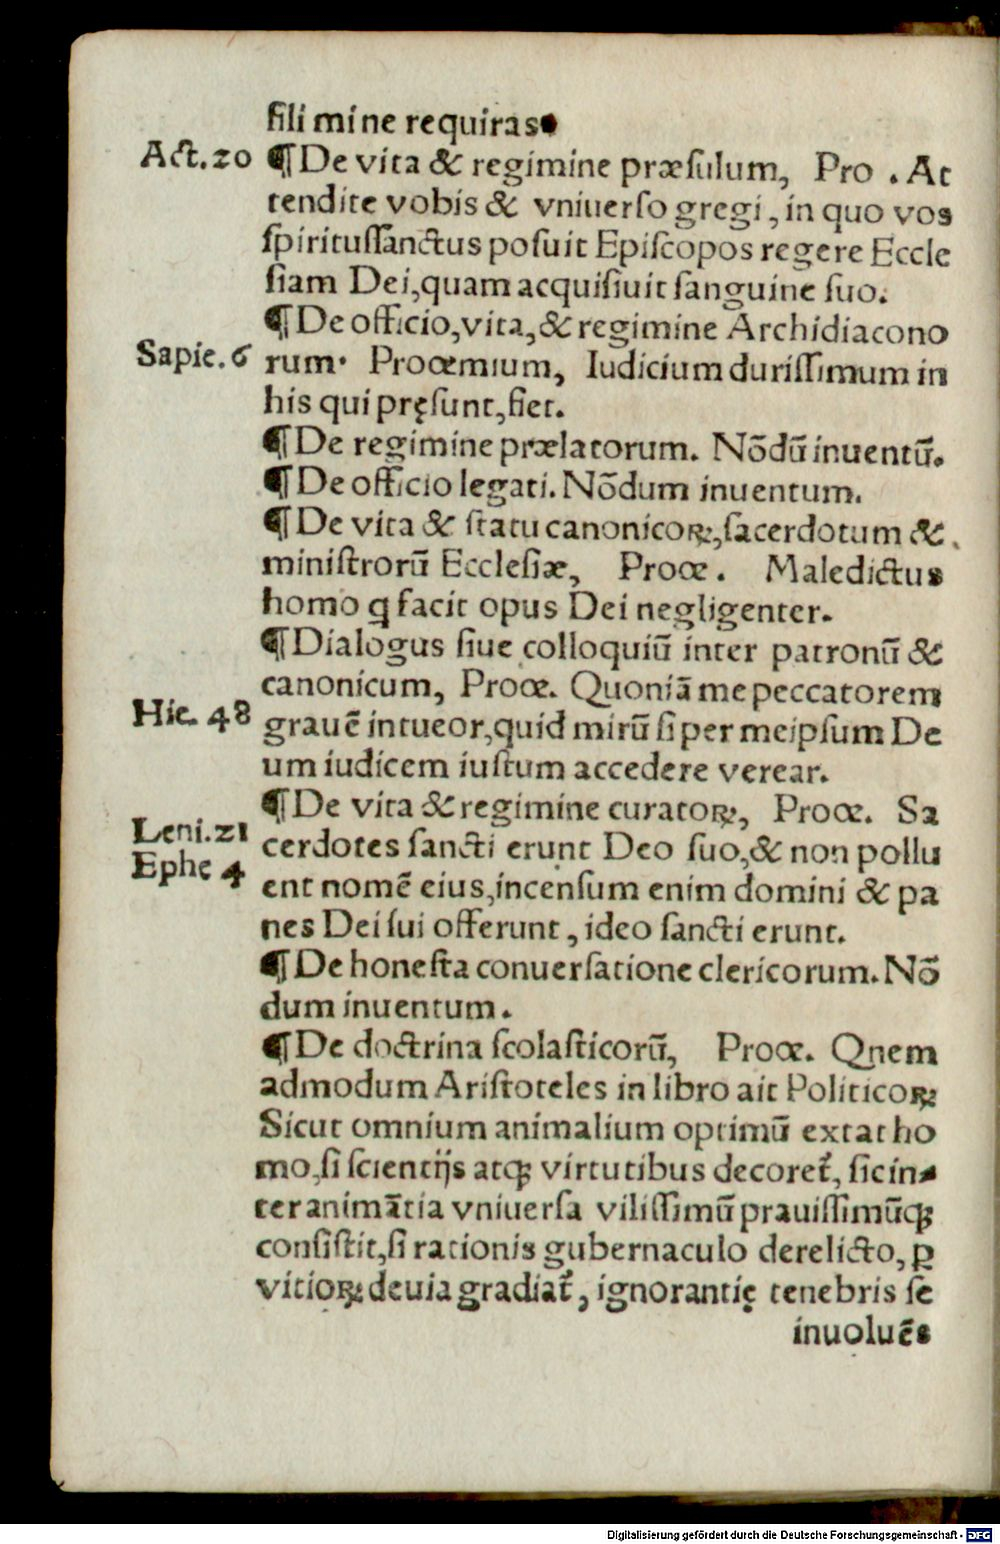 fili mi ne requiras.
Act. 20 ¶ De vita & regimine præſulum, Pro . At
tendite vobis & vniuerſo gregi, in quo vos
ſpirituſſanctus poſuit Epiſcopos regere Eccle
ſiam Dei, quam acquiſiuit ſanguine ſuo.
¶ De officio, vita, & regimine Archidiacono
Sapie. 6 rum. Proœmium, Iudicium duriſſimum in
his qui pręſunt, fiet.
¶ De regimine prælatorum. Nōdū inuentū.
¶ De officio legati. Nōdum inuentum.
¶ De vita & ſtatu canonicoꝝ, ſacerdotum &
miniſtrorū Eccleſiæ, Proœ. Maledictus
homo q̄ facit opus Dei negligenter.
¶ Dialogus ſiue colloquiū inter patronū &
canonicum, Proœ. Quoniā me peccatorem
Hie. 48 grauē intueor, quid mirū ſi per meipſum De
um iudicem iuſtum accedere verear.
¶ De vita & regimine curatoꝝ, Proœ. Sa
Leni. 21 cerdotes ſancti erunt Deo ſuo, & non pollu
Ephe 4 ent nomē eius, incenſum enim domini & pa
nes Dei ſui offerunt, ideo ſancti erunt.
¶ De honeſta conuerſatione clericorum. Nō
dum inuentum.
¶ De doctrina ſcolaſticorū, Proœ. Qnem
admodum Ariſtoteles in libro ait Politicoꝝ
Sicut omnium animalium optimū extat ho
mo, ſi ſcientijs atqꝫ virtutibus decoret᷑, ſic in-
ter animātia vniuerſa viliſſimū prauiſſimūqꝫ
conſiſtit, ſi rationis gubernaculo derelicto, ꝑ
vitioꝝ deuia gradiat᷑, ignorantię tenebris ſe
inuoluēs
Digitalisierung gefördert durch die Deutsche Forschungsgemeinschaft - DFG